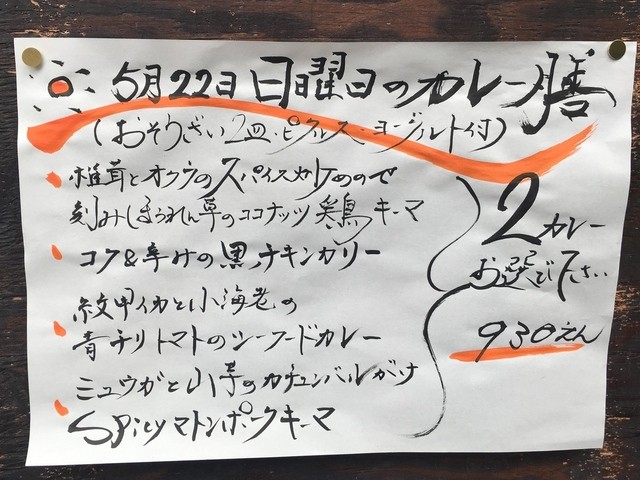 5月22日 日曜日のカレー膳
(おそうざい2皿・ピクルス・ヨーグルト付)
椎茸とオクラのスパイス炒めので
刻みほうれん草のココナッツ鶏キーマ
コク&辛けの黒チキンカリー
紋甲イカと小海老の
青チリトマトのシーフードカレー
ミュウガと山芋のカチュンバルがけ
Spicyマトンポークキーマ
2カレー
お選び下さい
930えん